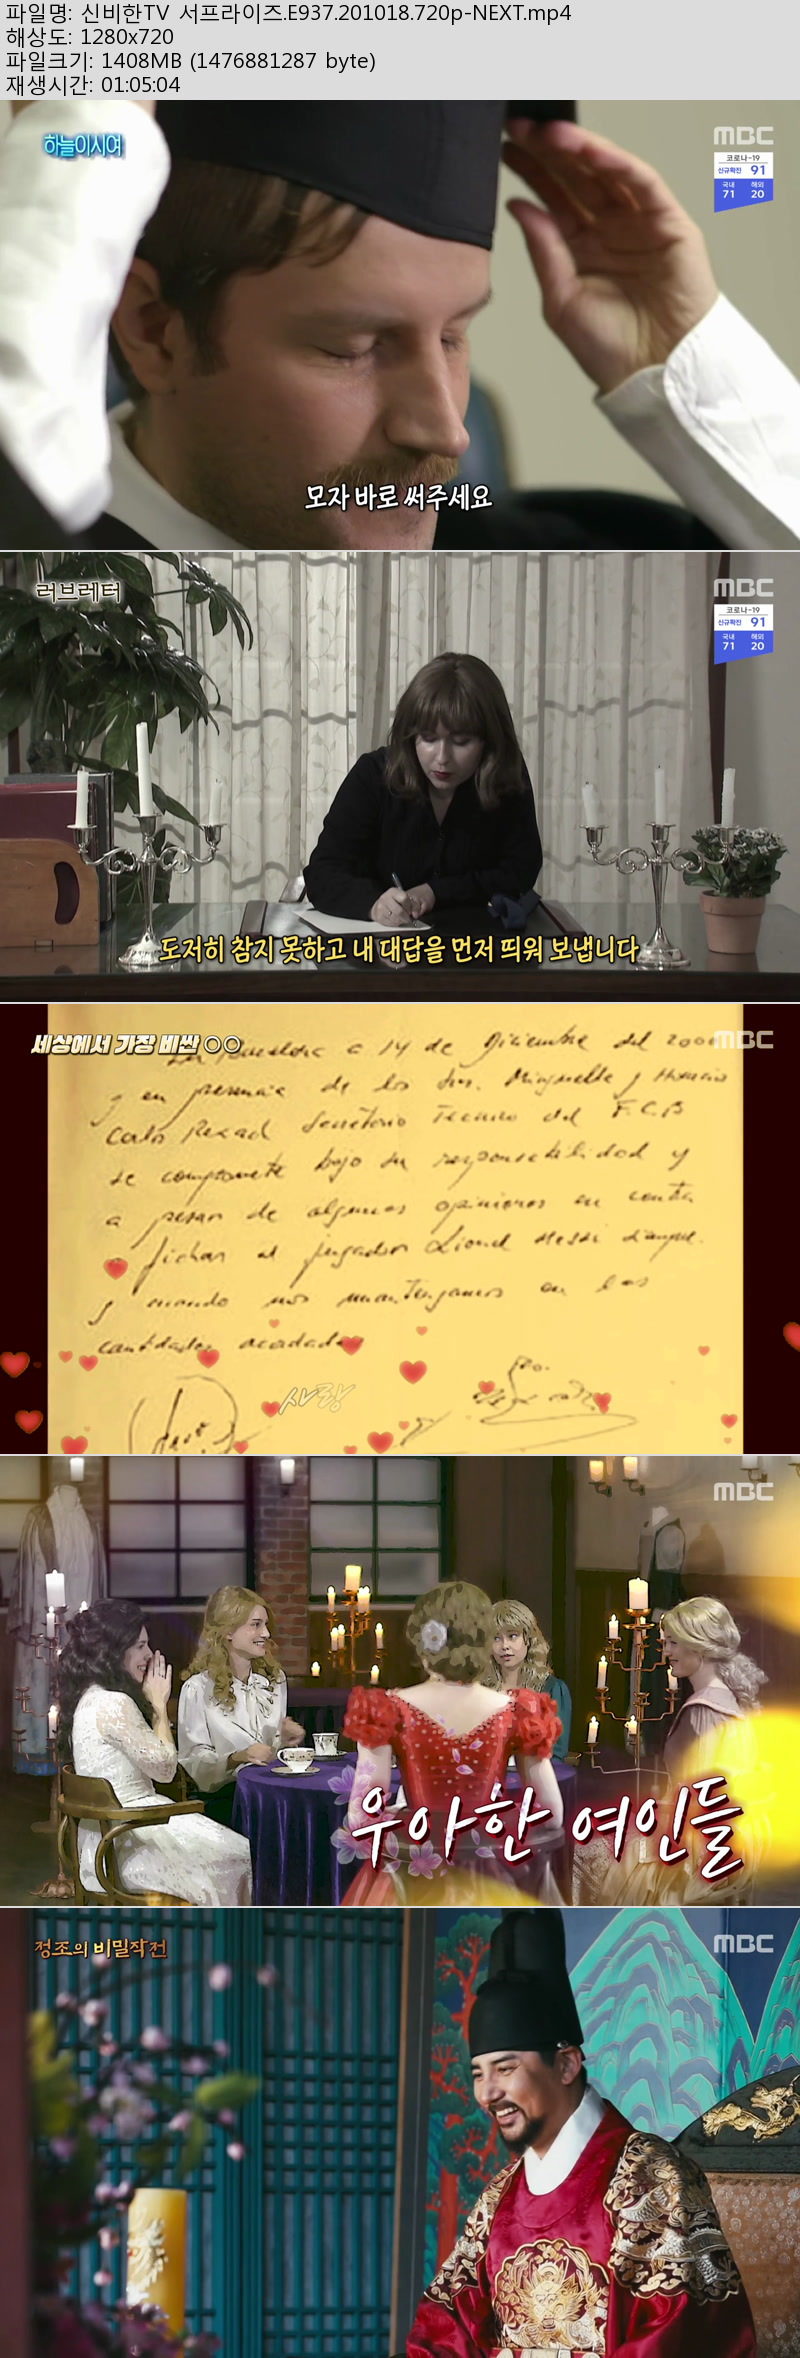 파일명: 신비한TV 서프라이즈.E937.201018.720p-NEXT.mp4
해상도: 1280x720
파일크기: 1408MB (1476881287 byte)
재생시간: 01:05:04
하늘이시여
MBC
코로나-19
신규확진 91
국내 해외
71 20
모자 바로 써주세요
러브레터
MBC
코로나-19
신규확진 91
국내 해외
71 20
도저히 참지 못하고 내 대답을 먼저 띄워 보냅니다
세상에서 가장 비싼 ○○
MBC
a 14 de Diciembre del
y en presencia de los Srs. Minguella y Horacio
Carlos Rexach Secretario Tecnico del F.C.B
se compromete bajo su responsabilidad y
a pesar de algunas opiniones en contra
fichar al jugador Lionel Messi
y cuando nos mantengamos en las
cantidades acordadas
사랑
MBC
우아한 여인들
정조의 비밀작전
MBC